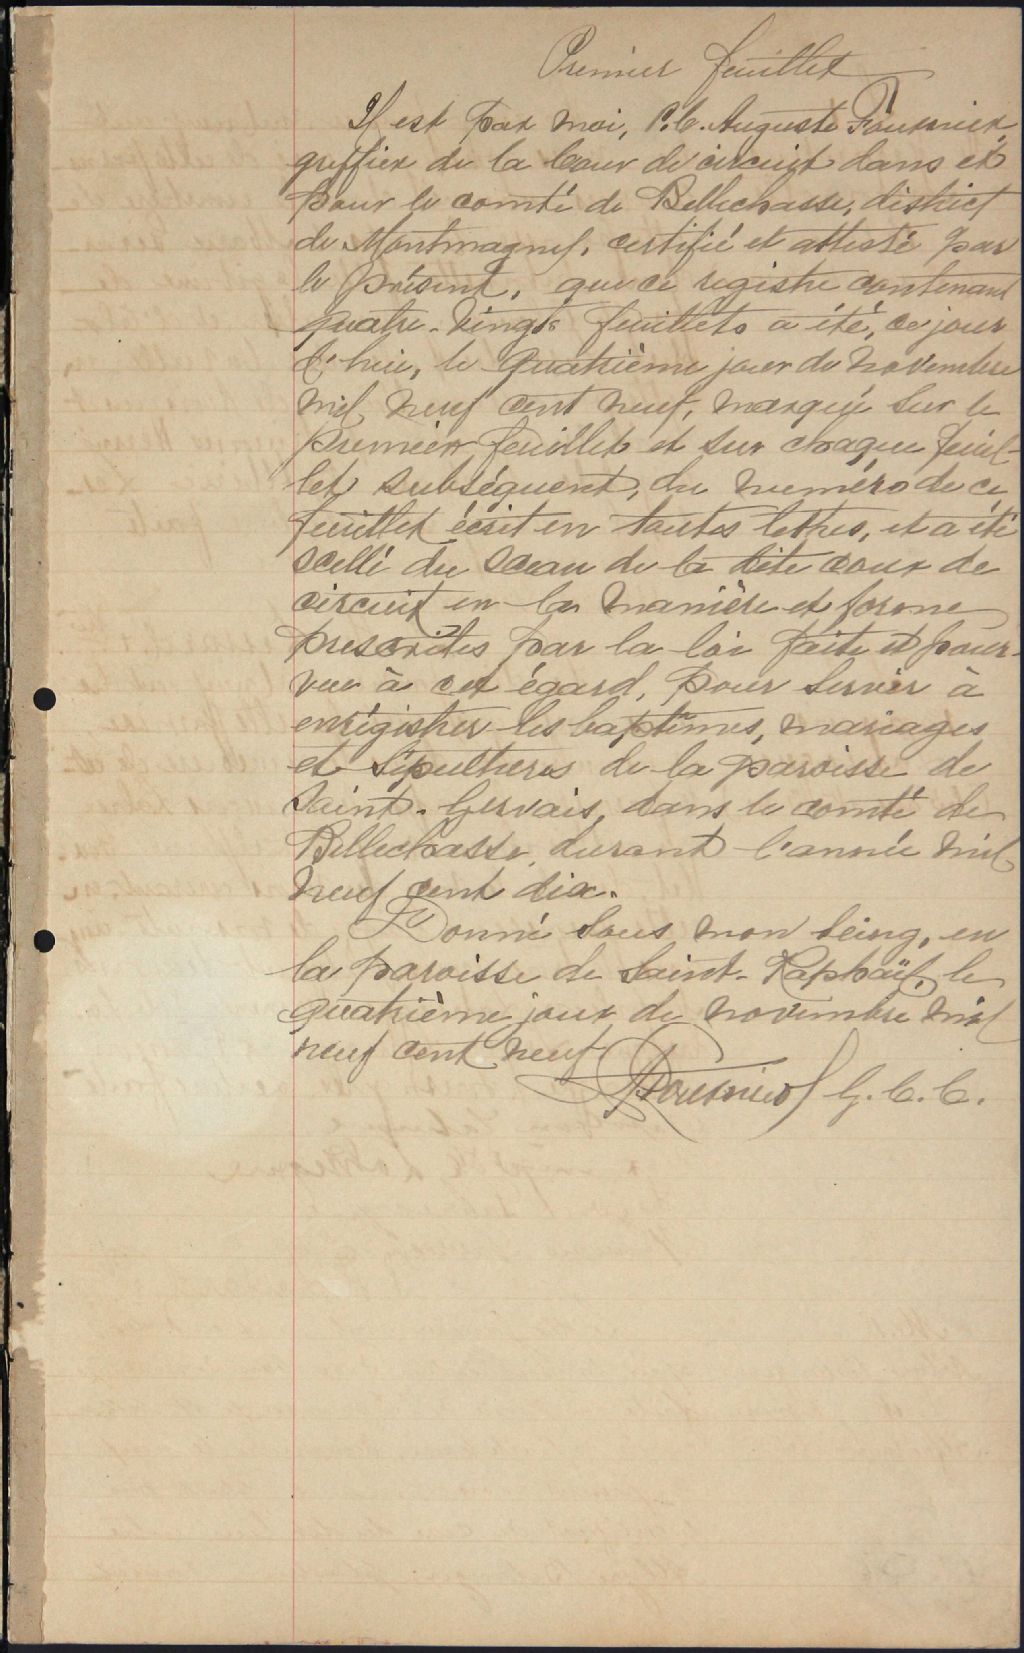 Premier feuillet
Il est par moi, P.C. Auguste Fournier
greffier de la Cour de circuit dans et
pour le comté de Bellechasse, district
de Montmagny, certifié et attesté par
le présent, que ce registre contenant
quatre-vingts feuillets a été, ce jour
d'hui, le quatrième jour de novembre
mil neuf cent neuf, marqué sur le
premier feuillet et sur chaque feuil-
let subséquent, du numéro de ce
feuillet écrit en toutes lettres, et a été
scellé du sceau de la dite cour de
circuit en la manière et forme
prescrites par la loi faite et pour-
vue à cet égard, pour servir à
enrégistrer les baptêmes, mariages
et sépultures de la paroisse de
Saint-Gervais, dans le comté de
Bellechasse, durant l'année mil
neuf cent dix.
Donné sous mon seing, en
la paroisse de Saint-Raphaël, le
quatrième jour de novembre mil
neuf cent neuf
Fournier G.C.C.